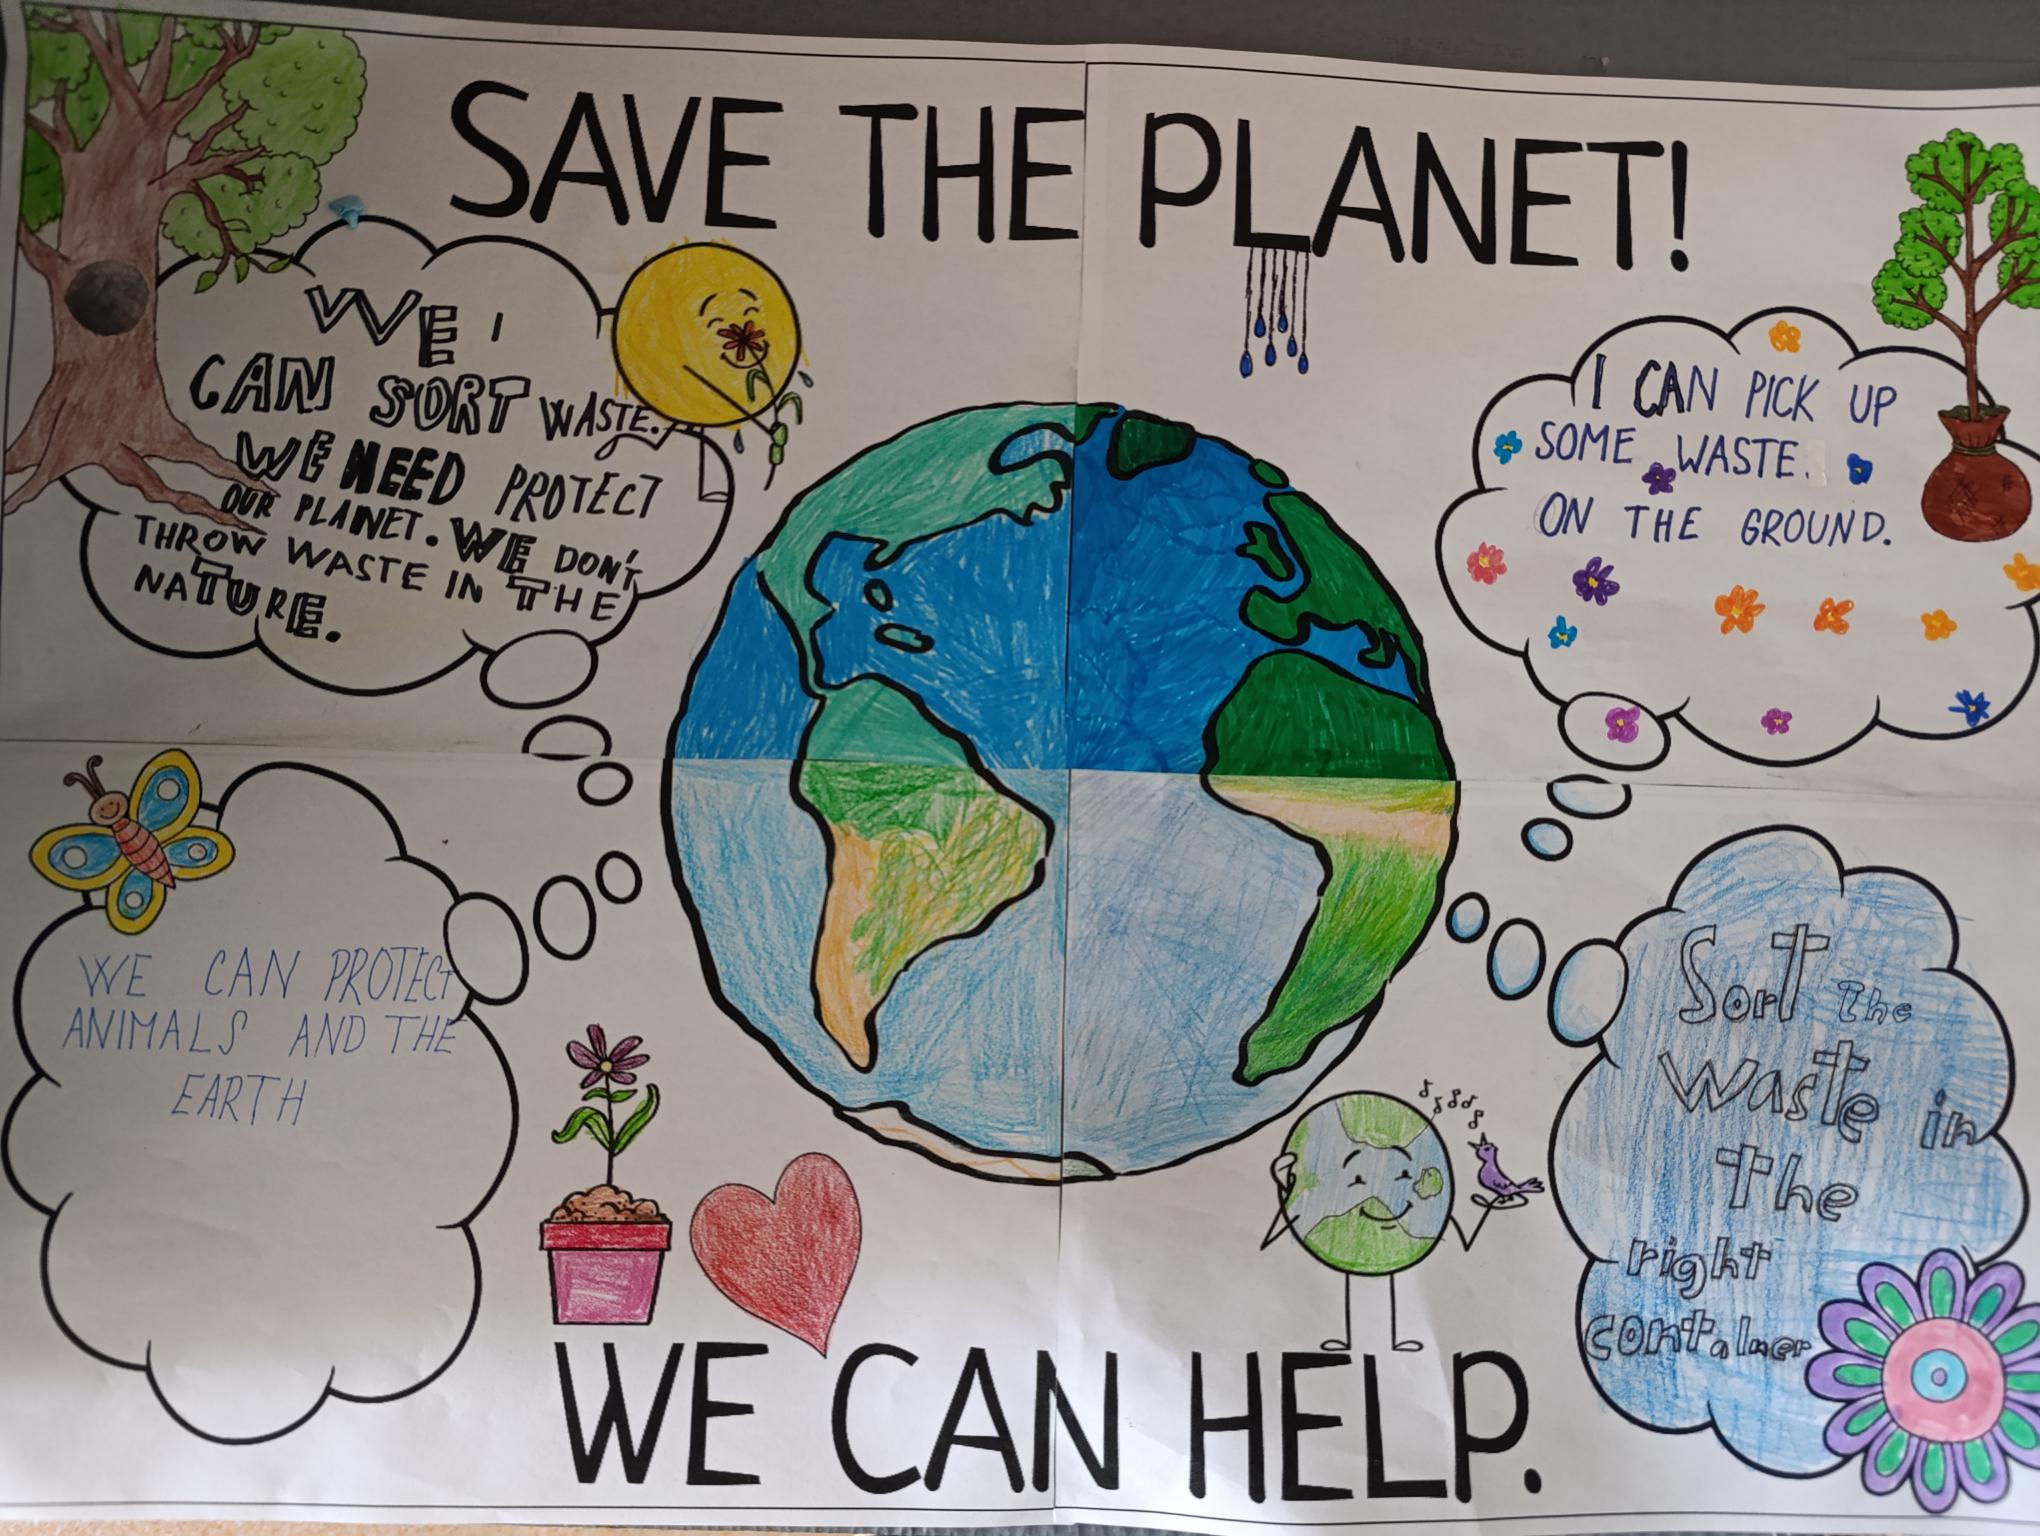 SAVE THE PLANET!
WE
CAN SORT WASTE.
WE NEED PROTECT
OUR PLANET. WE DON'T
THROW WASTE IN THE
NATURE.
I CAN PICK UP
SOME WASTE.
ON THE GROUND.
WE CAN PROTECT
ANIMALS AND THE
EARTH
Sort The
Waste in
The
right
container
WE CAN HELP.